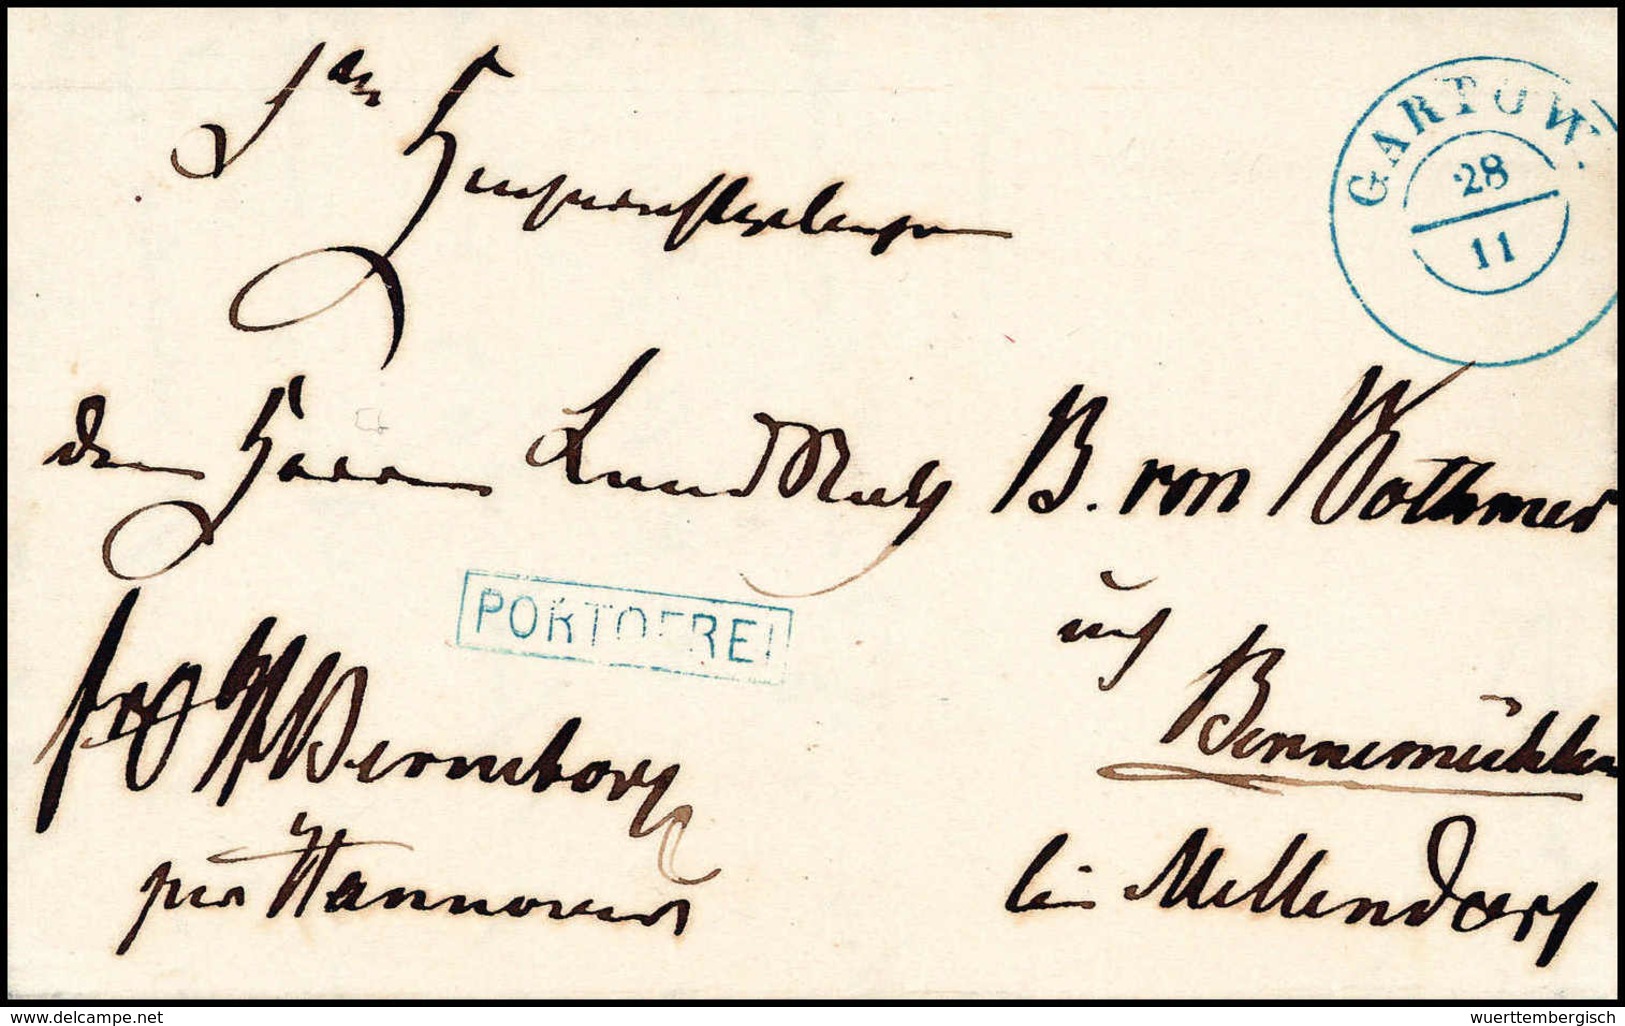 Sr
Hochwürden
GARTOW.
28
11
dem Herrn Landrath B. von Bothmer
PORTOFREI
auf
Bennemühlen
bei Mellendorf
per Hannover
www.delcampe.net
wuerttembergisch